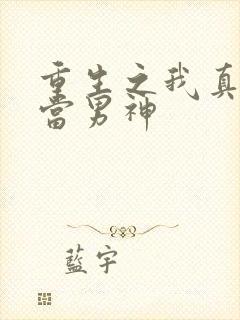 重生之我真
當男神
藍宇